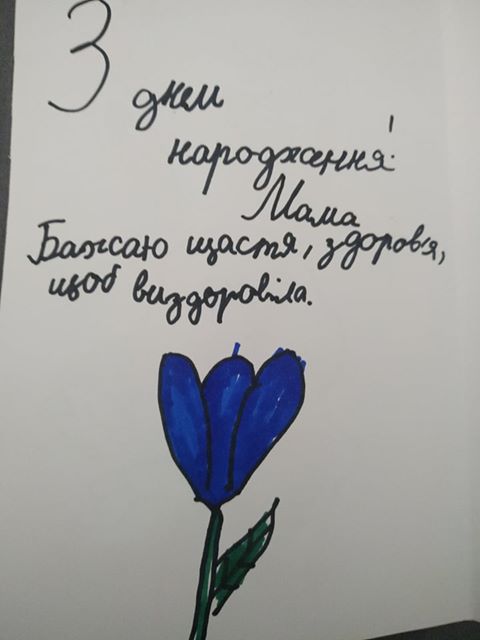 З днем
народження!
Мама
Бажаю щастя, здоров'я,
щоб виздоровіла.